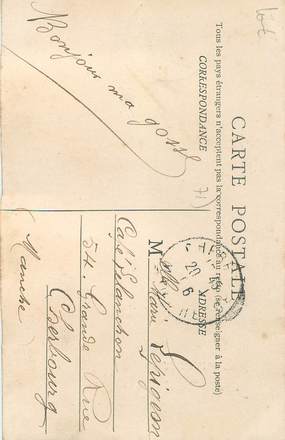 CARTE POSTALE
Tous les pays étrangers n'acceptent pas la correspondance au recto (se renseigner à la poste)
CORRESPONDANCE
ADRESSE
Bonjour ma gosse
M elle Marie
Café Planchon
54. Grande Rue
Cherbourg
Manche